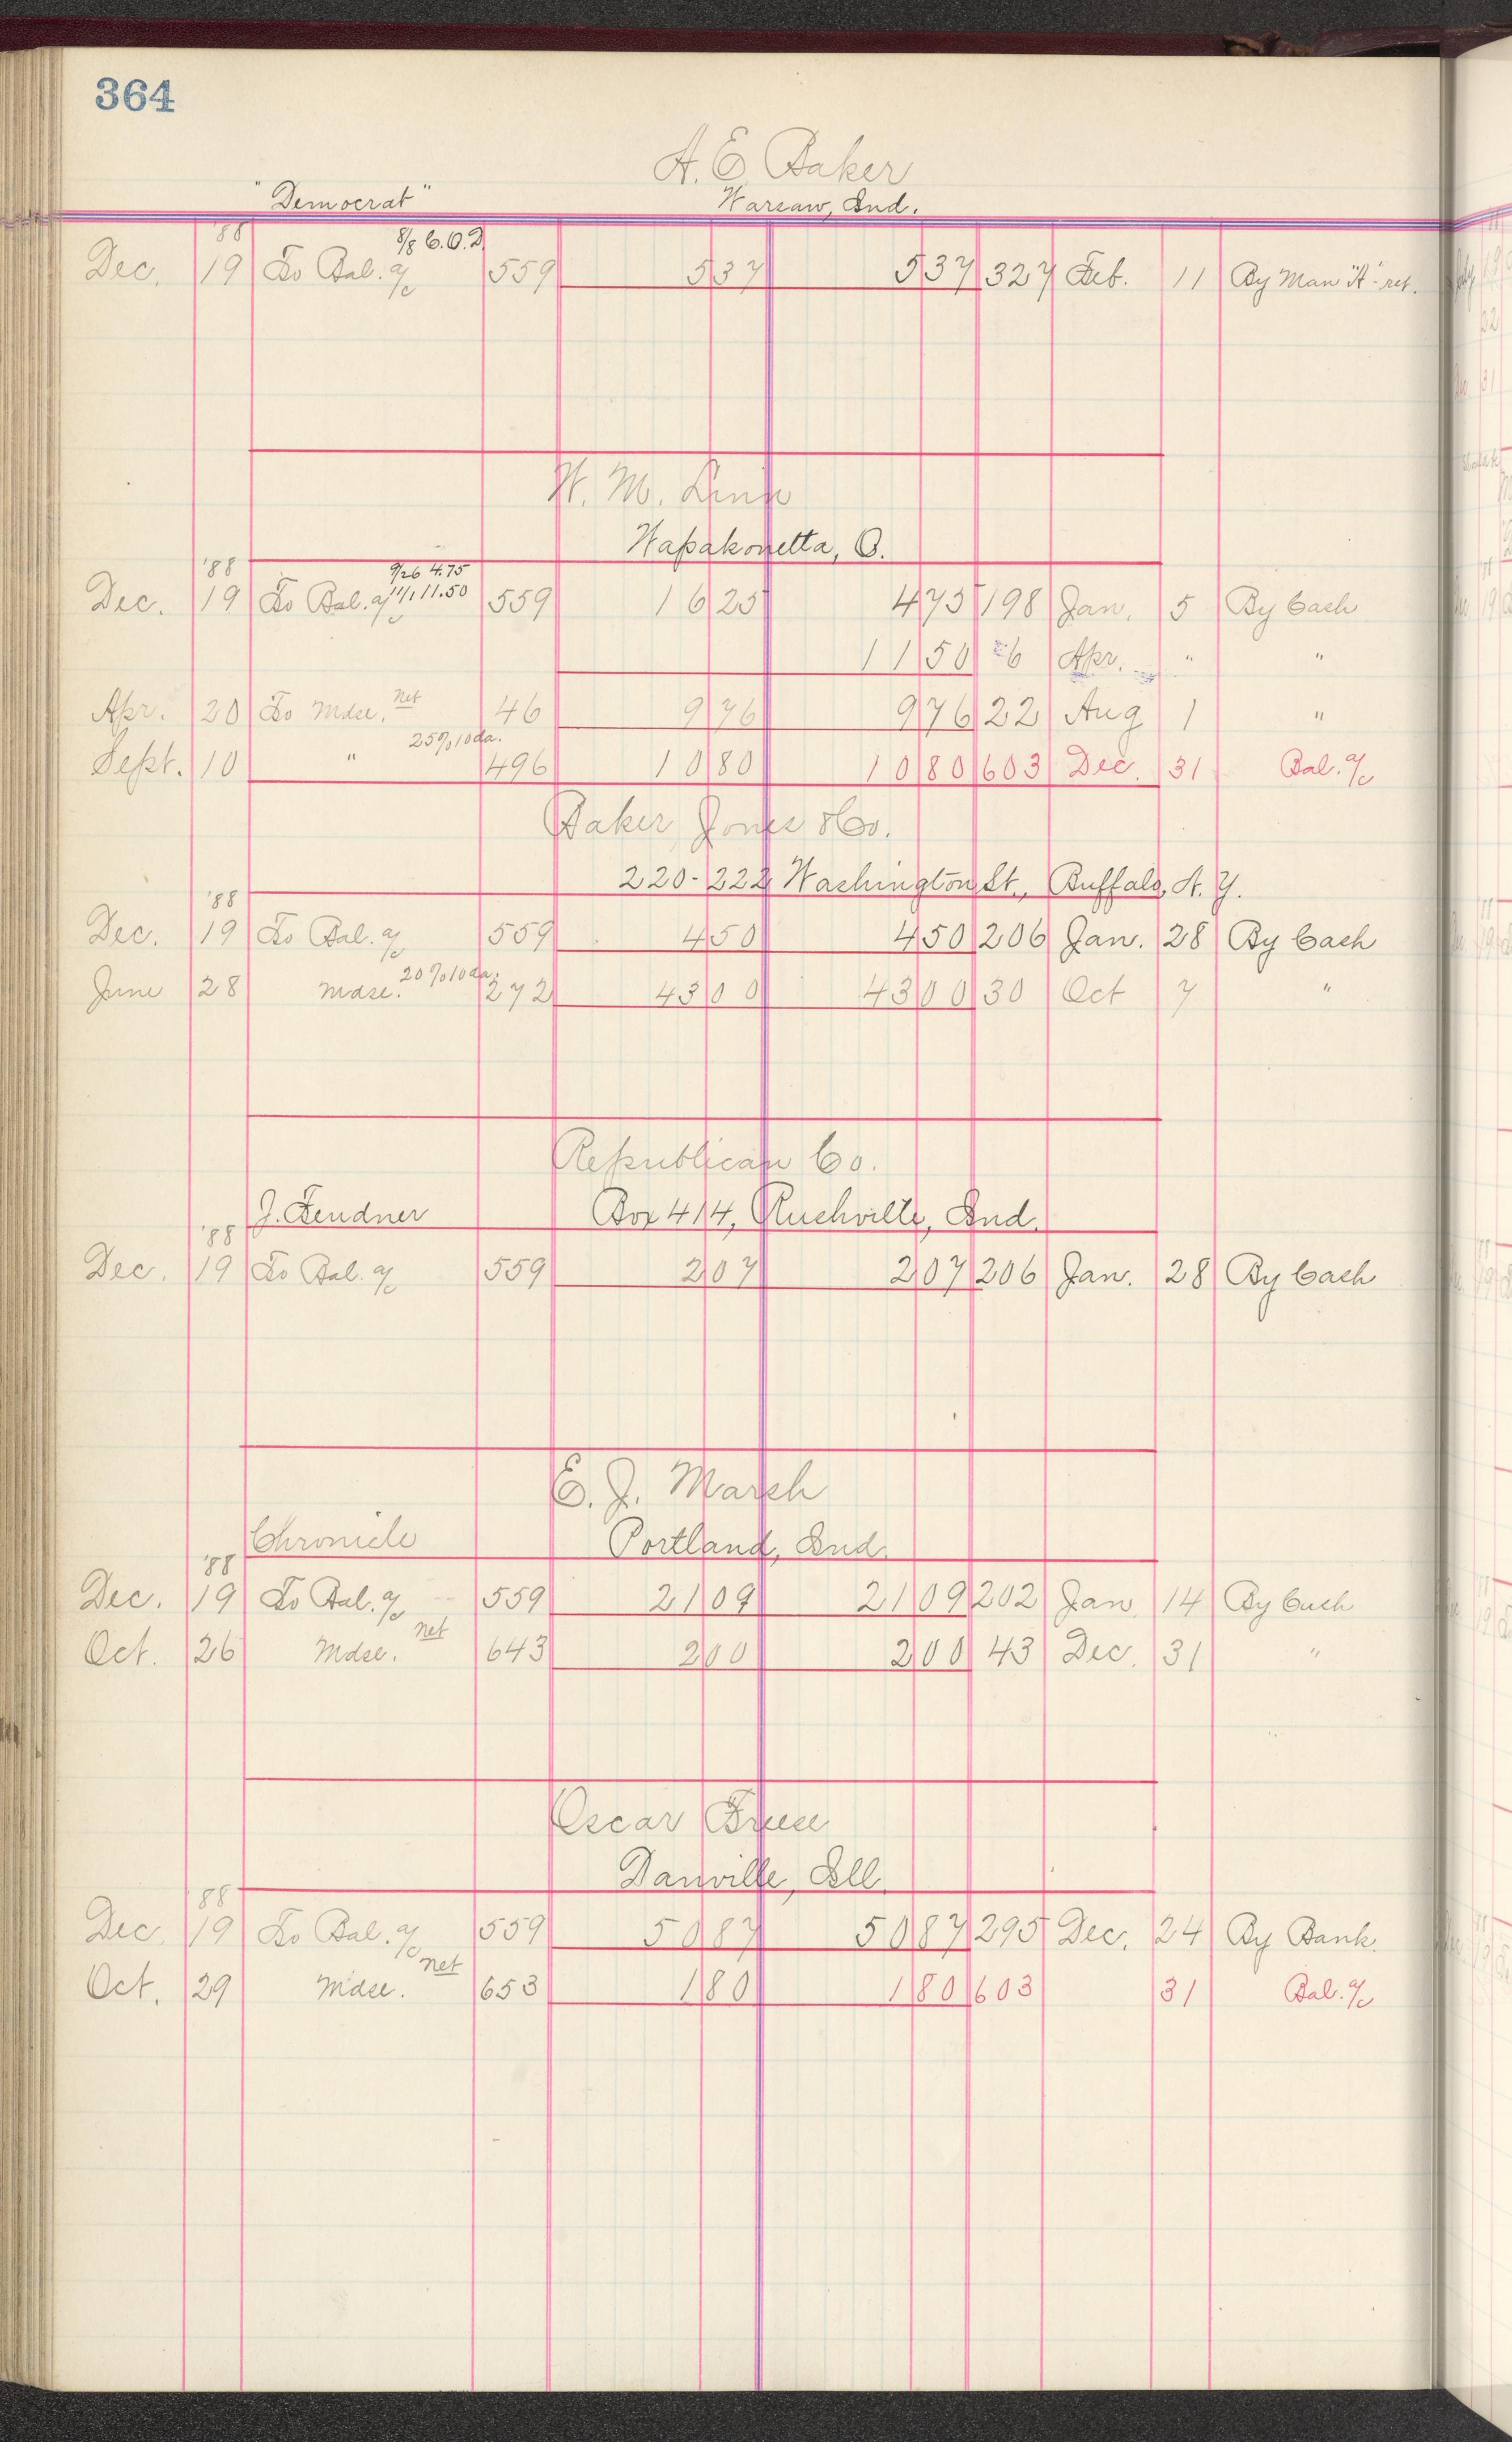 364
A. E. Baker
"Democrat" Warsaw, Ind.
'88 8/8 C.O.D.
Dec. 19 To Bal. a/c 559 5 37 5 37 327 Feb. 11 By Man "A" ret.
W. M. Linn
Wapakonetta, O.
'88 9/26 4.75
Dec. 19 To Bal. a/c 11/1 11.50 559 16 25 4 75 198 Jan. 5 By Cash
11 50 6 Apr. " "
Apr. 20 To Mdse. Net 46 9 76 9 76 22 Aug 1 "
25% 10 da.
Sept. 10 " 496 10 80 10 80 603 Dec. 31 Bal. a/c
Baker, Jones & Co.
220-222 Washington St., Buffalo, N. Y.
'88
Dec. 19 To Bal. a/c 559 4 50 4 50 206 Jan. 28 By Cash
June 28 Mdse. 20% 10 da. 272 43 00 43 00 30 Oct 7 "
Republican Co.
J. Feudner Box 414, Rushville, Ind.
'88
Dec. 19 To Bal. a/c 559 2 07 2 07 206 Jan. 28 By Cash
E. J. Marsh
Chronicle Portland, Ind.
'88
Dec. 19 To Bal. a/c 559 21 09 21 09 202 Jan. 14 By Cash
Oct. 26 Mdse. Net 643 2 00 2 00 43 Dec. 31 "
Oscar Freese
Danville, Ill.
88
Dec. 19 To Bal. a/c 559 50 87 50 87 295 Dec. 24 By Bank
Oct. 29 Mdse. Net 653 1 80 1 80 603 31 Bal. a/c